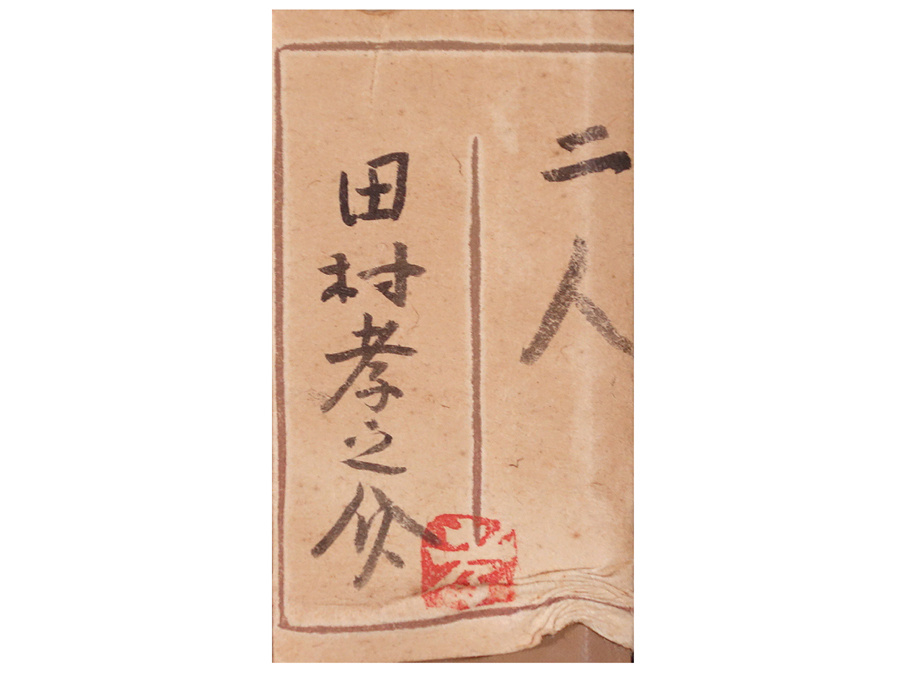 二人
田村孝之介
孝